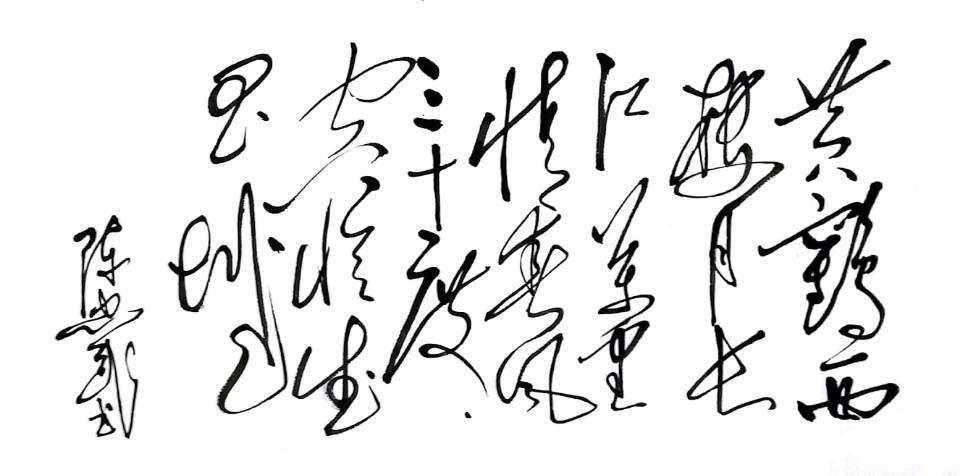 黄鹤西
楼月长
江萬里
情春风
三十度
空憶武
昌城
陈 书